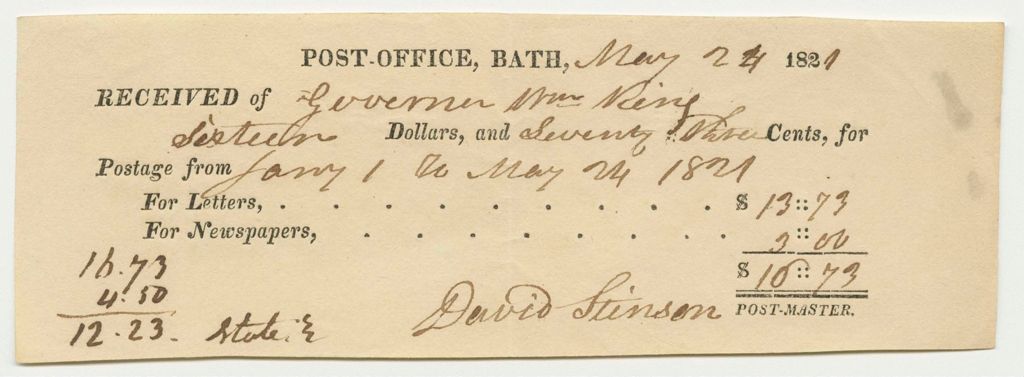 POST-OFFICE, BATH, May 24 1821
RECEIVED of Governer Wm King
Sixteen Dollars, and Seventy Three Cents, for
Postage from Jany 1 to May 24 1821
For Letters, . . . . . . . . . . $ 13::73
For Newspapers, . . . . . . . . . 3::00
$ 16::73
16.73
4.50
12.23. State
David Stinson POST-MASTER.